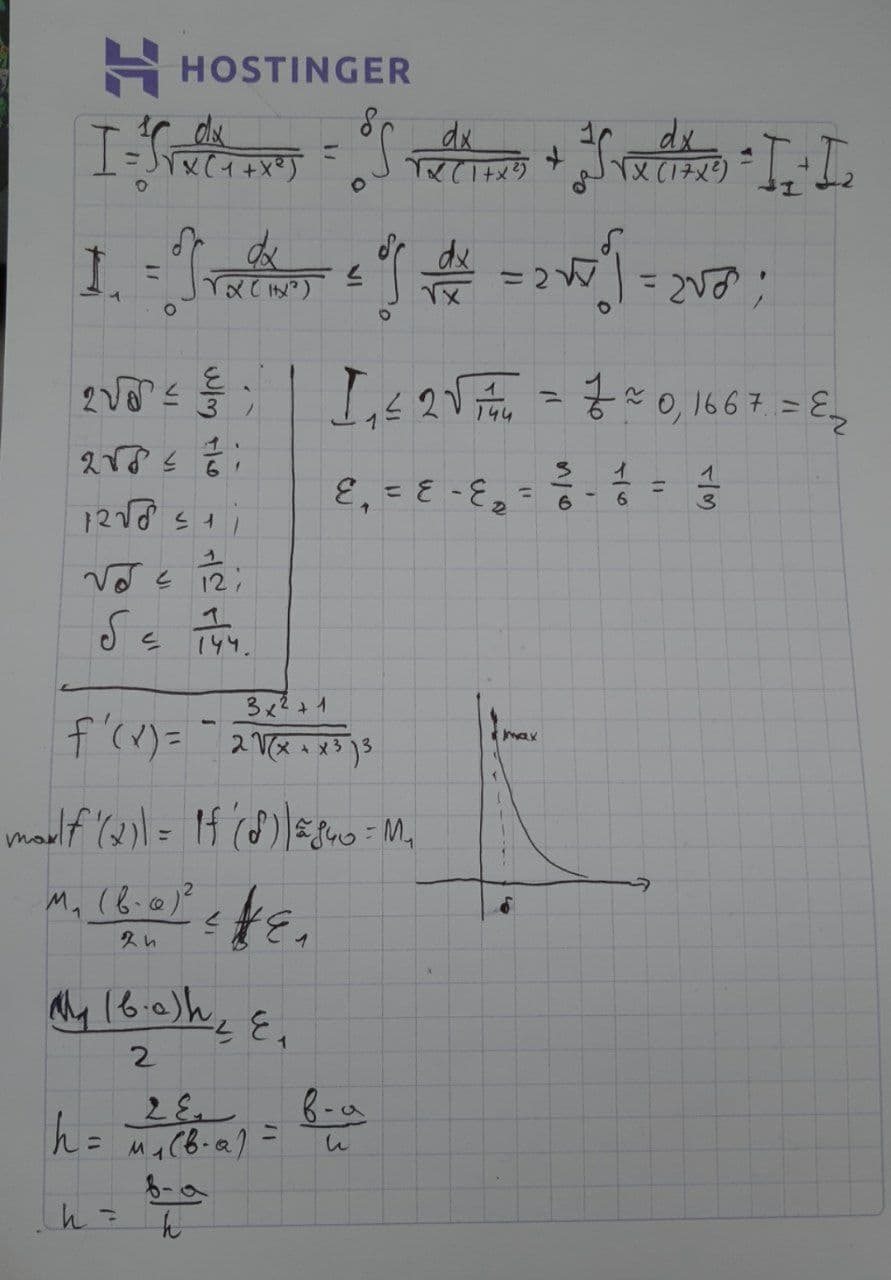 HOSTINGER
I = ₀∫¹ dx/√(x(1+x²)) = ₀∫^δ dx/√(x(1+x²)) + δ∫¹ dx/√(x(1+x²)) = I₁ + I₂
I₁ = ₀∫^δ dx/√(x(1+x²)) ≤ ₀∫^δ dx/√x = 2√x |₀^δ = 2√δ ;
2√δ ≤ ε/3 ;
2√δ ≤ 1/6 ;
12√δ ≤ 1 ;
√δ ≤ 1/12 ;
δ ≤ 1/144 .
I₁ ≤ 2√(1/144) = 1/6 ≈ 0,1667 = ε₂
ε₁ = ε - ε₂ = 3/6 - 1/6 = 1/3
f'(x) = - (3x²+1)/(2√(x+x³)³)
max
δ
max|f'(x)| = |f'(δ)| ≈ 840 = M₁
M₁ (b-a)²/2n ≤ ε₁
M₁(b-a)h/2 ≤ ε₁
h = 2ε₁/(M₁(b-a)) = (b-a)/n
n = (b-a)/h